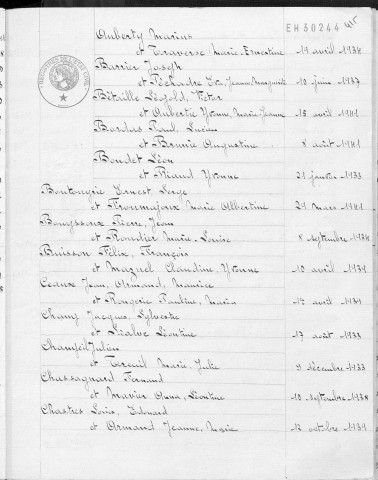 EH 30244
Auberty Marius
et Traverse Marie Ernestine 19 avril 1934
Barrier Joseph
et Jeanne Marguerite 10 juin 1937
Bétaille Léopold, Victor
et Aubertie Yvonne, Marie Jeanne 15 avril 1941
Bordas Paul, Lucien
et Brunie Augustine 8 août 1941
Boudet Léon
et Yvonne 21 janvier 1933
Ernest Serge
et Marie Albertine 29 mars 1941
Bouyssoux Pierre, Jean
et Rondier Marie, Louise 8 septembre 1934
Buisson Félix, François
et Mazuel Claudine, Yvonne 10 avril 1939
Ceaux Jean, Armand, Maurice
et Rougerie Pauline, Maria avril 1939
Jacques, Sylvestre
et Léontine 17 août 1933
Julien
et Treuil Marie, Julie 9 décembre 1933
Chassagnard Fernand
et Navier Anna, Léontine 10 septembre 1938
Chastres Louis, Edouard
et Armand Jeanne, Marie 12 octobre 1939